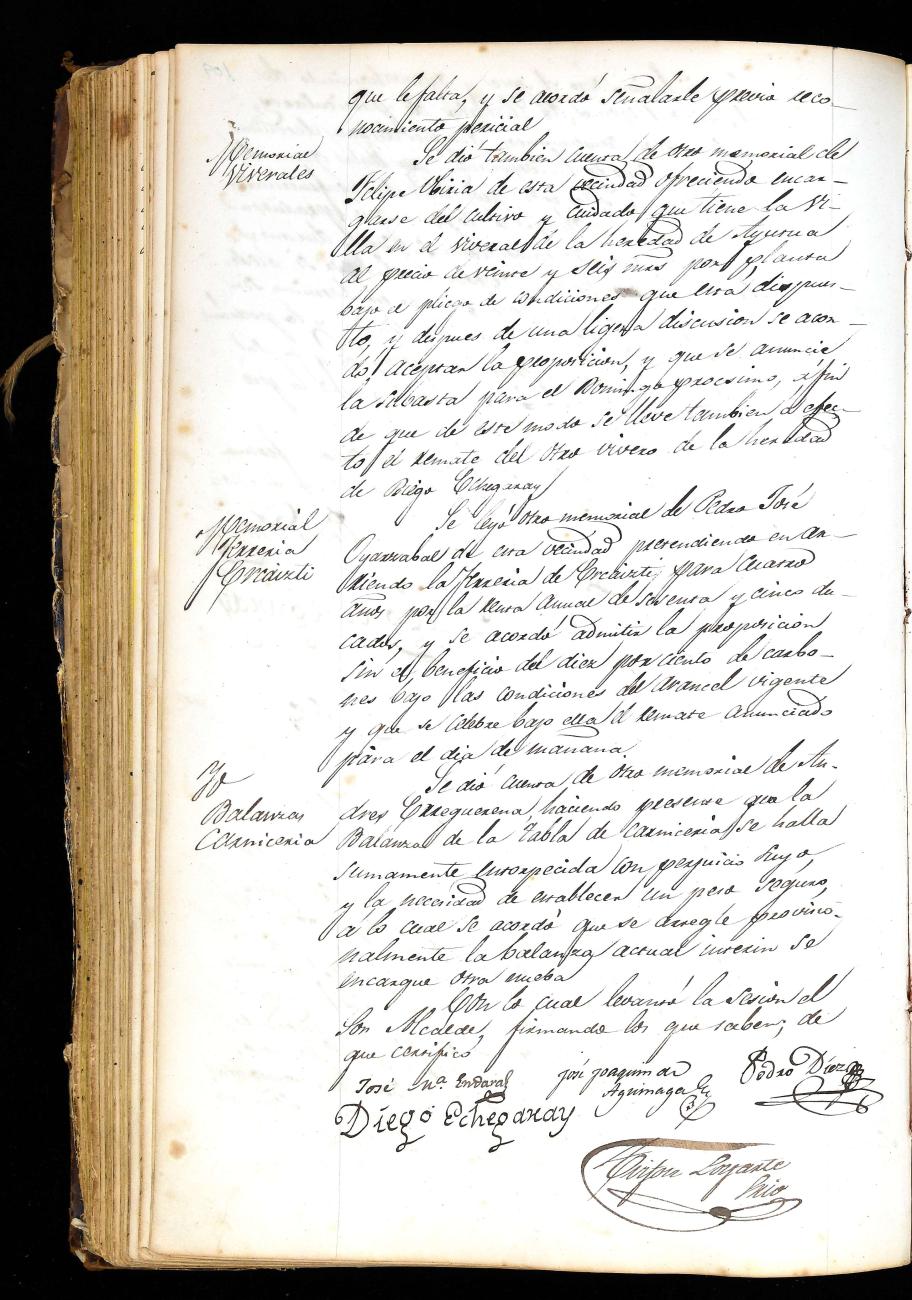 que le falta, y se acordó señalarle previo reco-
nocimiento pericial
Memorial
Viverales
Se dió tambien cuenta de otro memorial de
Felipe Obiria de esta vecindad ofreciendo encar-
garse del cultivo y cuidado que tiene la Vi-
lla en el viveral de la heredad de Ayurua
al precio de veinte y seis mrs por planta
bajo el pliego de condiciones que está dispues-
to, y despues de una ligera discusion se acor-
dó aceptar la proposicion, y que se anuncie
la subasta para el Domingo procsimo, á fin
de que de este modo se lleve tambien á efec-
to el remate del otro vivero de la heredad
de Diego Echegaray
Memorial
Ferreria
Ercaizti
Se leyó otro memorial de Pedro José
Oyarzabal de esta vecindad pretendiendo en ar-
riendo la Ferreria de Ercaizti, para cuatro
años por la renta anual de sesenta y cinco du-
cados, y se acordó admitir la proposicion
sin el beneficio del diez por ciento de carbo-
nes bajo las condiciones del arancel vigente
y que se celebre bajo ella el remate anunciado
para el dia de mañana
Yd
Balanzas
Carniceria
Se dió cuenta de otro memorial de An-
dres Errequerena, haciendo presente que la
Balanza de la Tabla de carniceria se halla
sumamente entorpecida con perjuicio suyo,
y la necesidad de establecer un peso seguro,
á lo cual se acordó que se arregle provisio-
nalmente la balanza actual interin se
encargue otra nueba
Con lo cual levantó la sesion el
Sor Alcalde, firmando los que saben, de
que certifico
José Ma. Endara
José Joaquin de
Aguinaga
Pedro Diez
Diego Echegaray
Loyarte
Srio